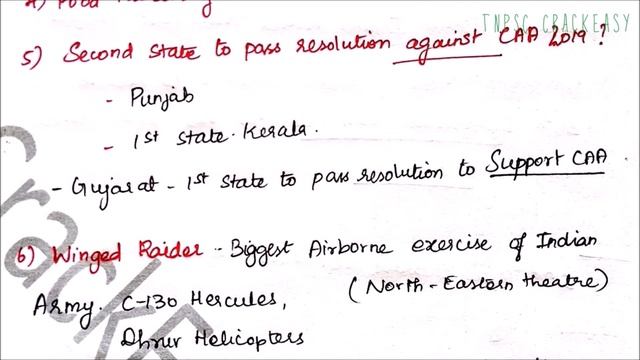 TNPSC CRACKEASY
5) Second State to pass resolution against CAA 2019?
- Punjab
- 1st State. Kerala.
- Gujarat - 1st State to pass resolution to Support CAA
6) Winged Raider - Biggest Airborne exercise of Indian
Army. C-130 Hercules, (North-Eastern theatre)
Dhruv Helicopters